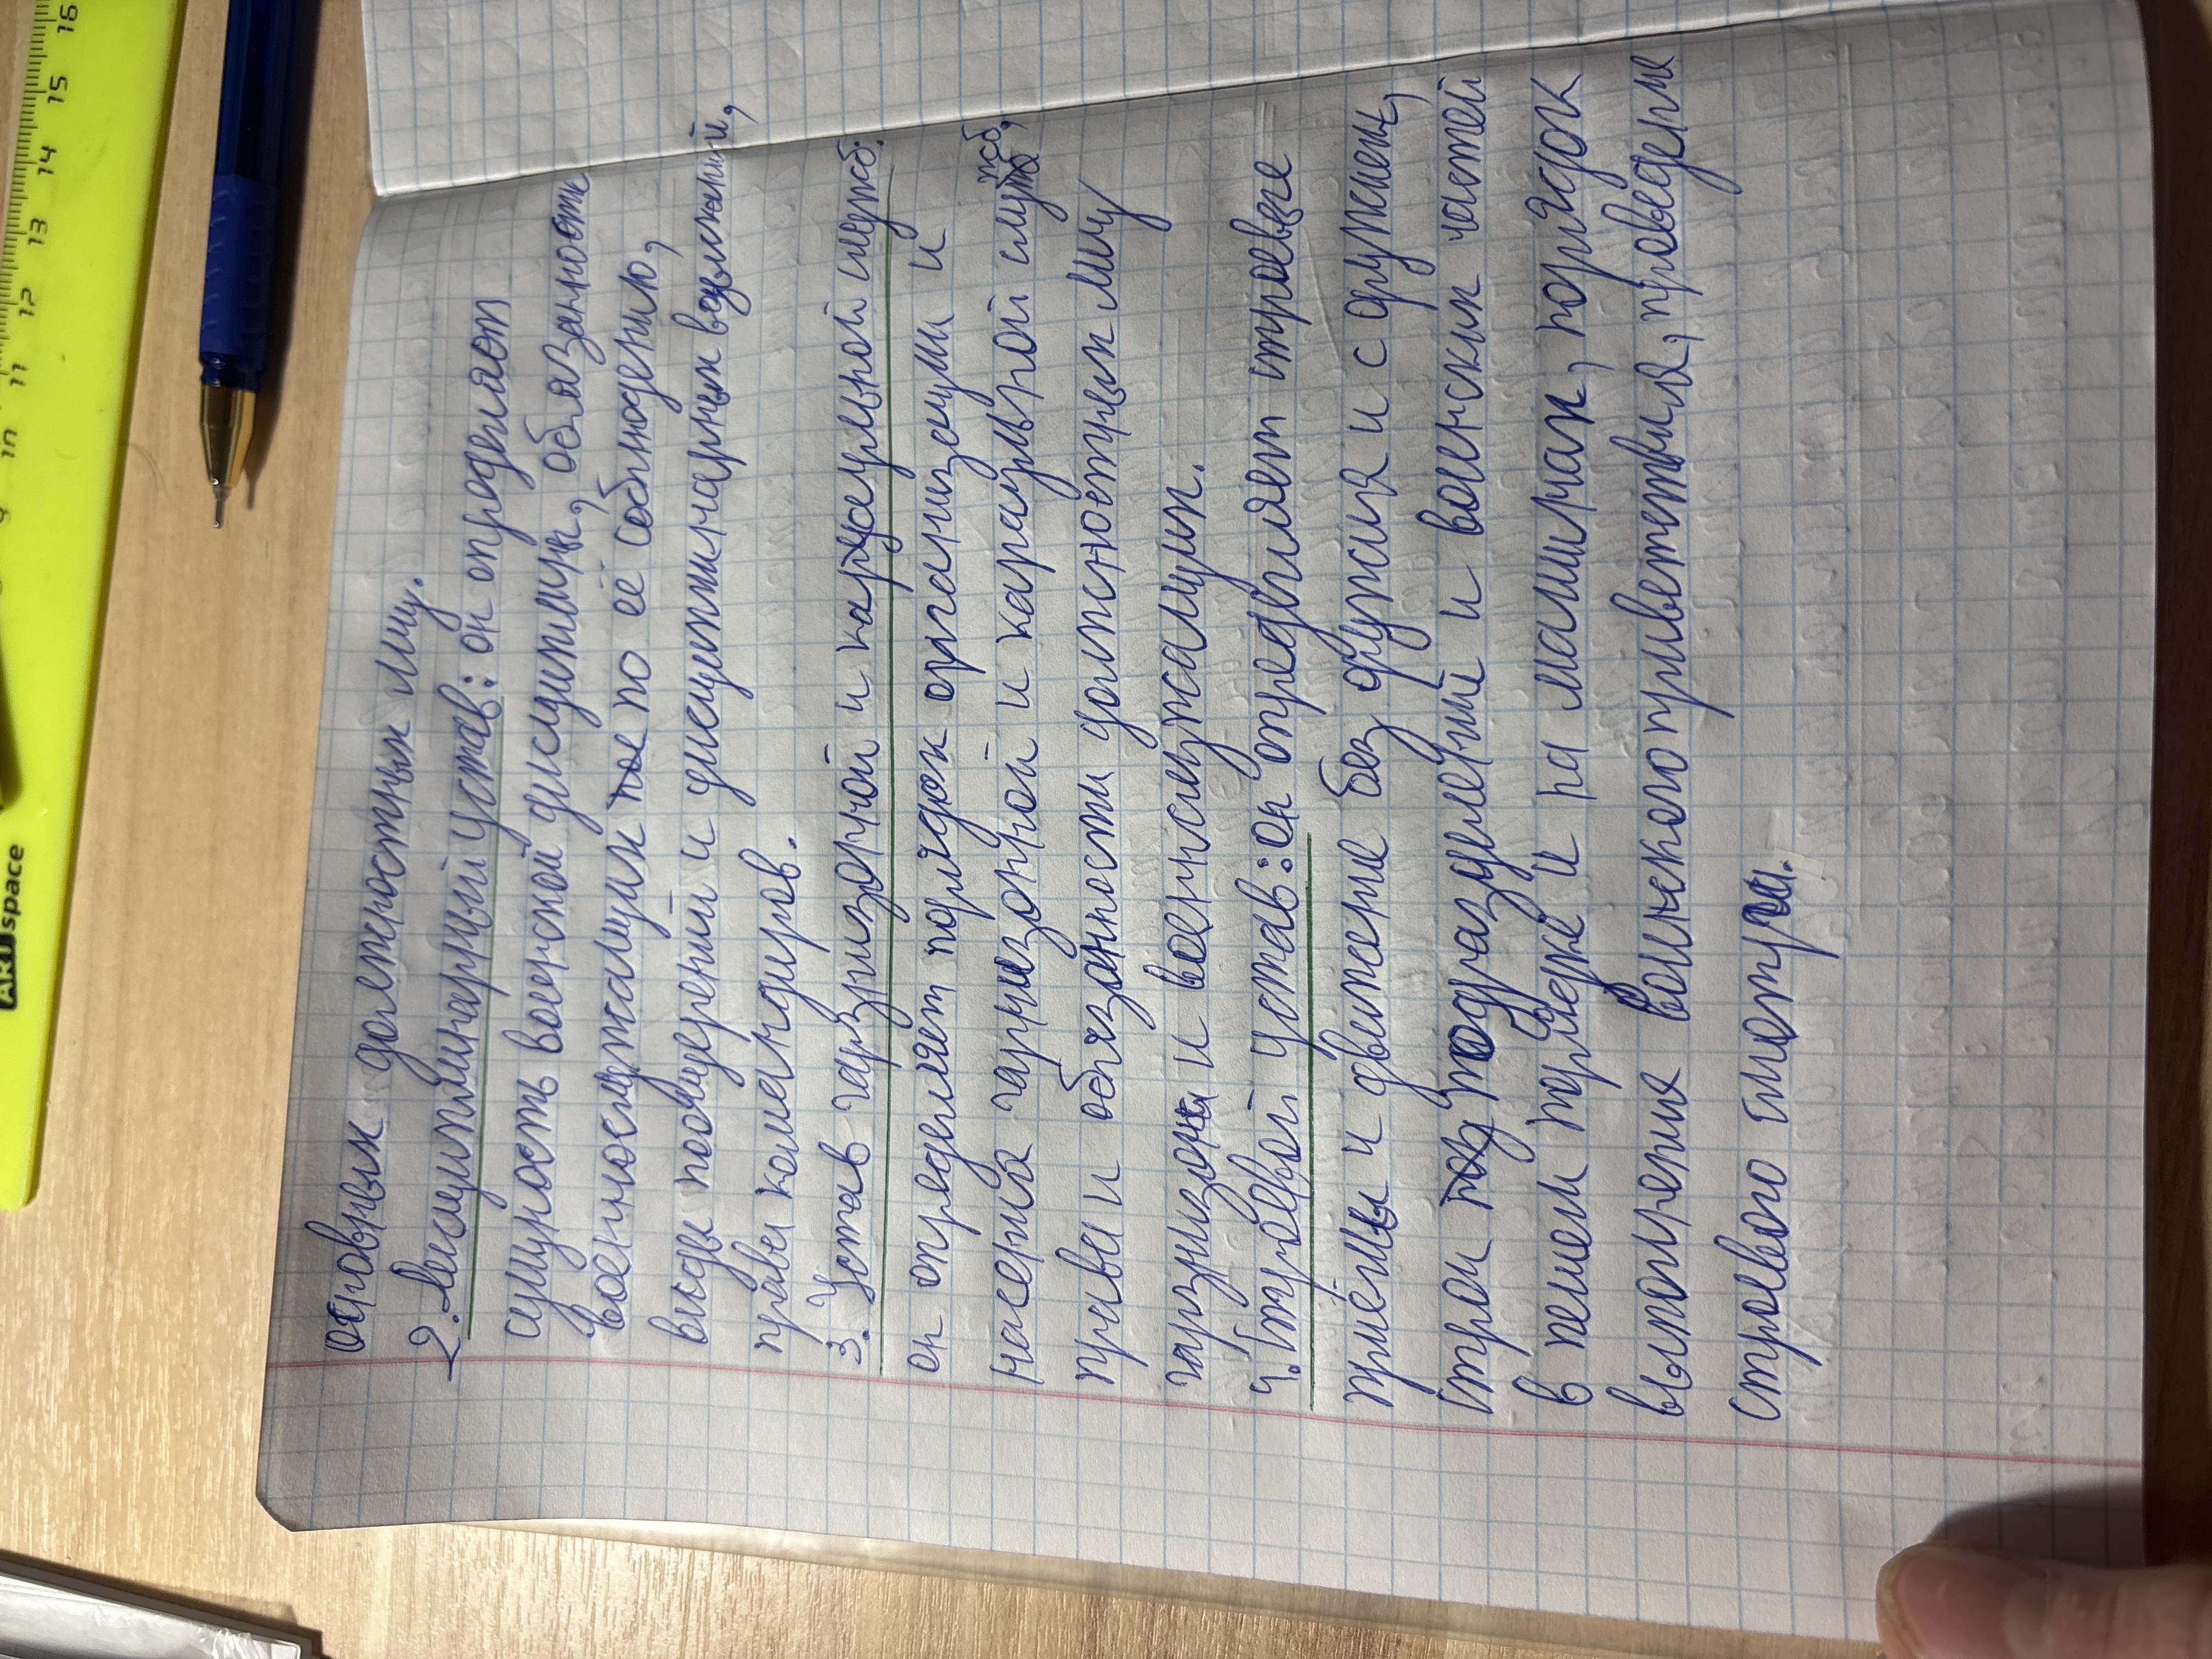 основных должностных лиц.
2. Дисциплинарный устав: он опроделяет
сущность воинской дисциплины, обязанность
военнослужащих по её соблюдению,
виды поощрений и дисциплинарных взысканий,
права командиров.
3. Устав гарнизонной и караульной служб:
он определяет порядок организации и
несения гарнизонной и караульной служб,
права и обязанности должностных лиц
гарнизона и военнослужащих.
4. Строевой устав: он определяет строевые
приёмы и движение без оружия и с оружием,
строи подразделений и воинских частей
в пешем порядке и на машинах, порядок
выполнения воинского приветствия, проведения
строевого смотра.
ART space
9 10 11 12 13 14 15 16